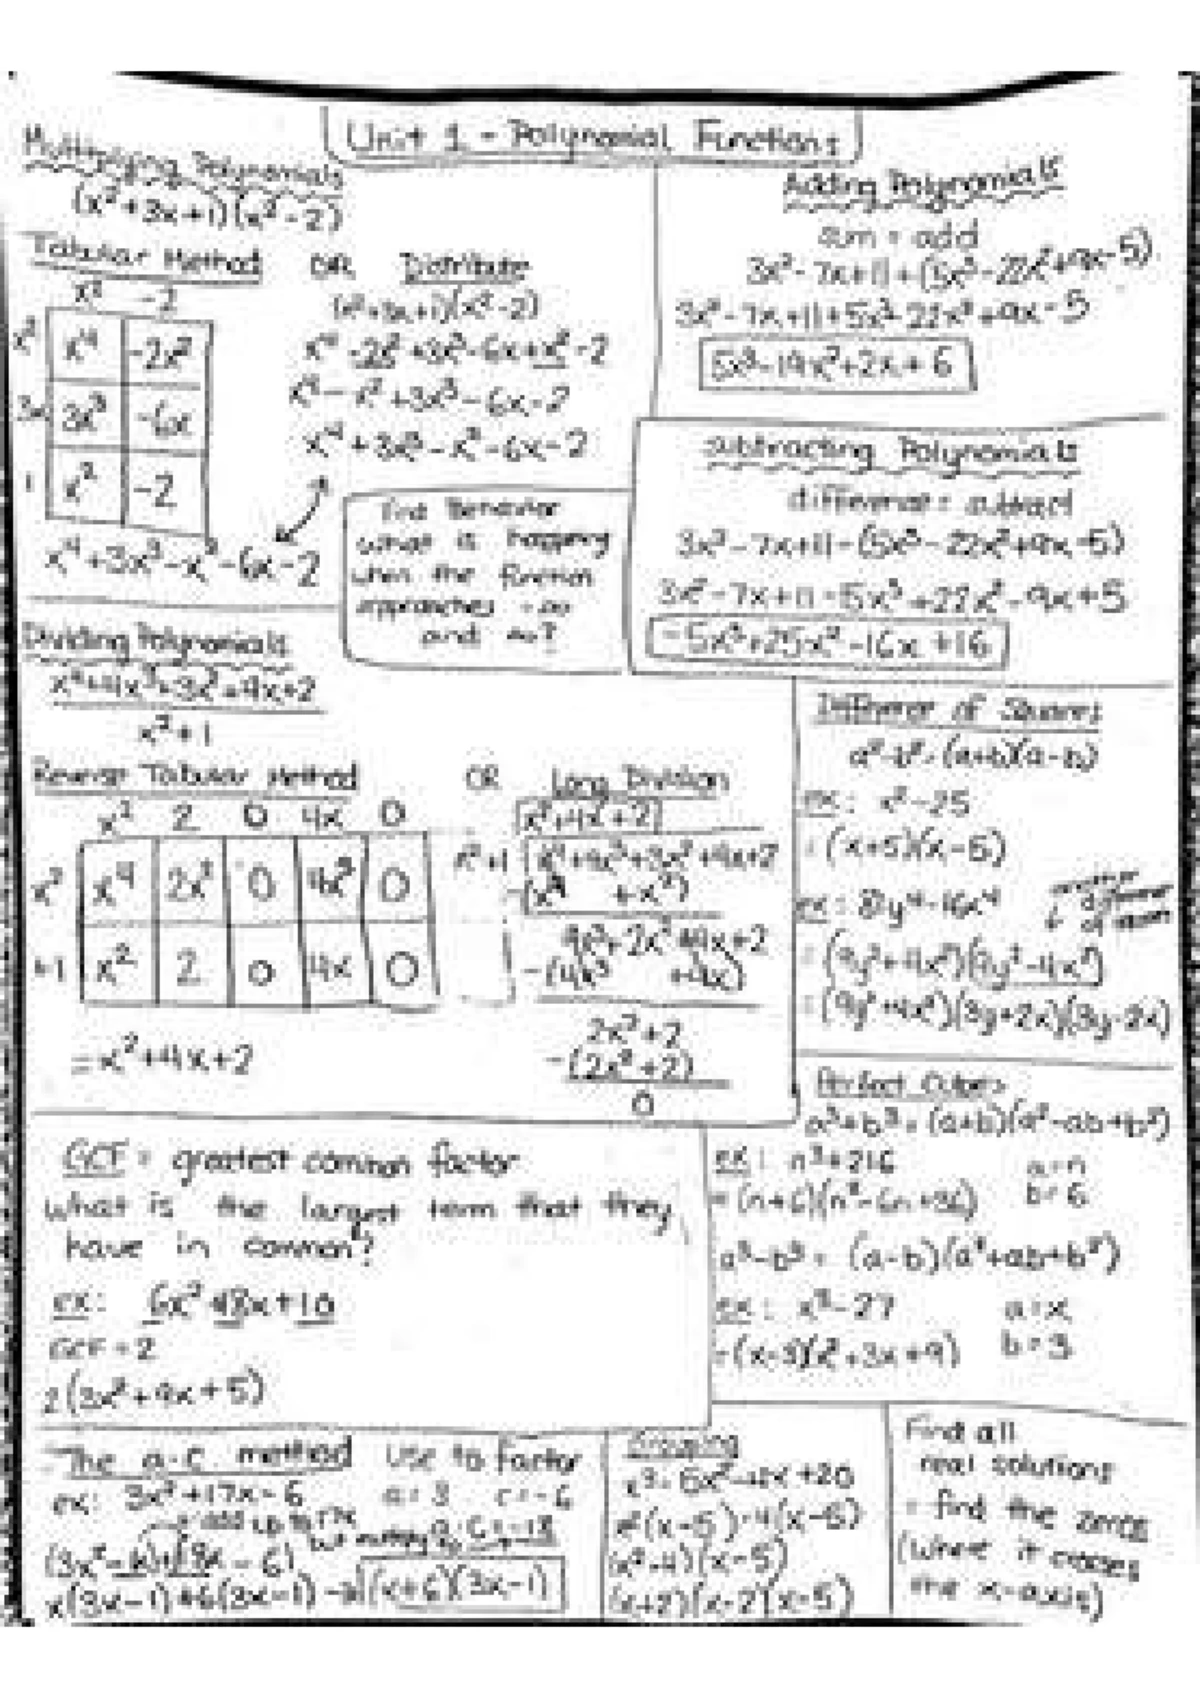 Unit 1 - Polynomial Functions
Multiplying Polynomials
(x²+3x+1)(x²-2)
Tabular Method OR Distribute
x² -2
x² x⁴ -2x²
3x 3x³ -6x
1 x² -2
x⁴+3x³-x²-6x-2
(x²+3x+1)(x²-2)
x⁴-2x²+3x³-6x+x²-2
x⁴-x²+3x³-6x-2
x⁴+3x³-x²-6x-2
Adding Polynomials
sum = add
3x²-7x+11+(5x³-22x²+9x-5)
3x²-7x+11+5x³-22x²+9x-5
5x³-19x²+2x+6
Subtracting Polynomials
difference = subtract
3x²-7x+11-(5x³-22x²+9x-5)
3x²-7x+11-5x³+22x²-9x+5
-5x³+25x²-16x+16
End Behavior
what is happing
when the function
approaches -∞
and ∞?
Dividing Polynomials
x⁴+4x³+3x²+4x+2
x²+1
Reverse Tabular Method OR Long Division
x² 2 0 4x 0
x² x⁴ 2x² 0 4x³ 0
+1 x² 2 0 4x 0
=x²+4x+2
x²+4x+2
x²+1 x⁴+4x³+3x²+4x+2
-(x⁴ +x²)
4x³+2x²+4x+2
-(4x³ +4x)
2x²+2
-(2x²+2)
0
Difference of Squares
a²-b²=(a+b)(a-b)
ex: x²-25
=(x+5)(x-5)
ex: 81y⁴-16x⁴
another
difference
of
=(9y²+4x²)(9y²-4x²)
=(9y²+4x²)(3y+2x)(3y-2x)
Perfect Cubes
a³+b³=(a+b)(a²-ab+b²)
ex: n³+216 a=n
=(n+6)(n²-6n+36) b=6
a³-b³=(a-b)(a²+ab+b²)
ex: x³-27 a=x
=(x-3)(x²+3x+9) b=3
GCF = greatest common factor
what is the largest term that they
have in common?
ex: 6x²+18x+10
GCF=2
2(3x²+9x+5)
The a·c method use to factor
ex: 3x²+17x-6 a=3 c=-6
add up to 17x
but multiply to a·c=-18
(3x²-x)+(18x-6)
x(3x-1)+6(3x-1) (x+6)(3x-1)
Grouping
x³-5x²-4x+20
x²(x-5)-4(x-5)
(x²-4)(x-5)
(x+2)(x-2)(x-5)
Find all
real solutions
= find the zeros
(where it crosses
the x-axis)